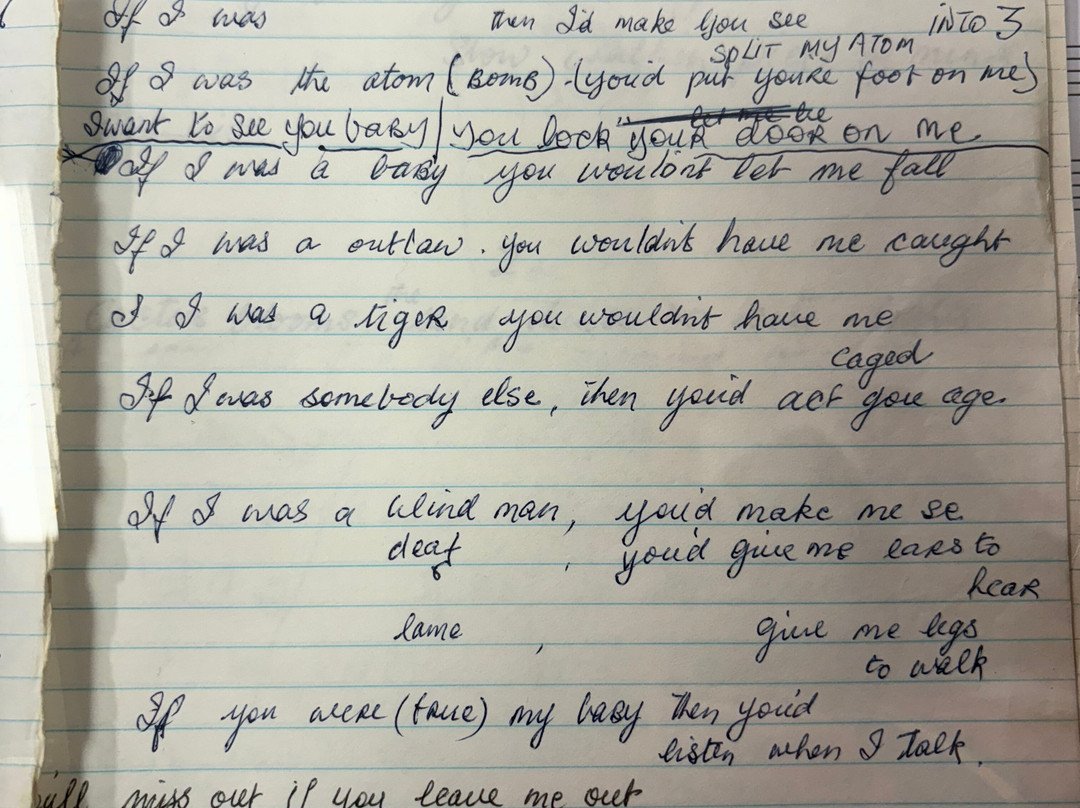 If I was then I'd make you see INTO 3
SPLIT MY ATOM
If I was the atom (BOMB) - (you'd put youre foot on me)
let me be
I want to see you baby / you lock "your door on me
If I was a baby you wouldn't let me fall
If I was a outlaw. you wouldn't have me caught
I I was a tiger you wouldn't have me
caged
If I was somebody else, then you'd act you age.
If I was a blind man, you'd make me se
deaf , you'd give me ears to
hear
lame , give me legs
to walk
If you were (true) my baby then you'd
listen when I talk.
miss out if you leave me out